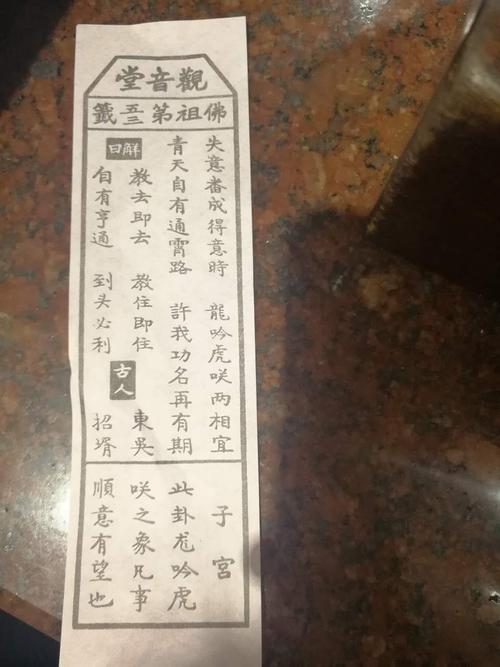 觀音堂
佛祖第五三籤
失意番成得意時 龍吟虎咲两相宜
青天自有通霄路 許我功名再有期
解曰
教去即去 教住即住
自有亨通 到头必利
古人
東吳
招壻
子宮
此卦龙吟虎
咲之象凡事
順意有望也